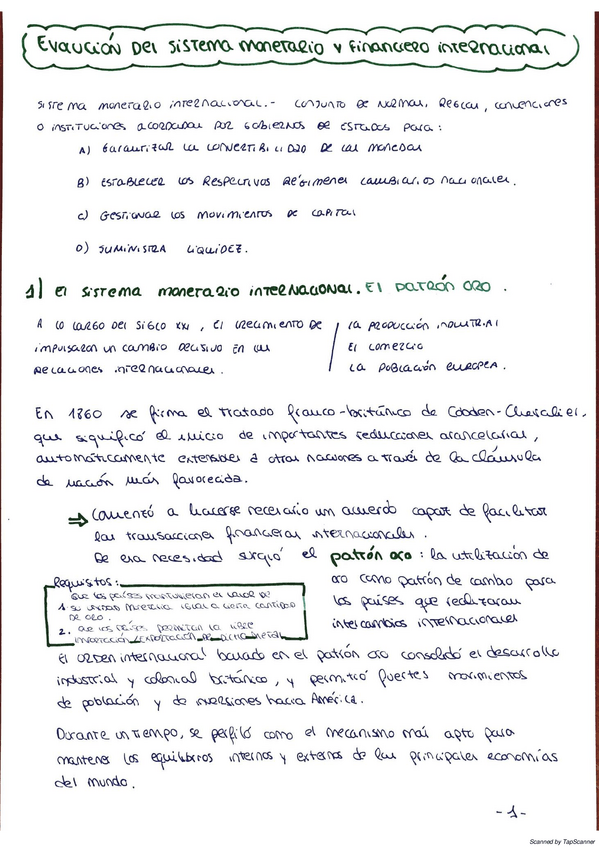 Evolución del sistema monetario y financiero internacional
Sistema monetario internacional.- conjunto de normas, reglas, convenciones
o instituciones acordadas por gobiernos de estados para:
A) Garantizar la convertibilidad de las monedas
B) Establecer los respectivos regímenes cambiarios nacionales.
C) Gestionar los movimientos de capital
D) Suministra liquidez.
1) El sistema monetario internacional. El patrón oro.
A lo largo del siglo XXI, el crecimiento de / la producción industrial
impulsaron un cambio decisivo en las / el comercio
relaciones internacionales. / la población europea.
En 1860 se firma el tratado franco-británico de Cobden-Chevalier,
que significó el inicio de importantes reducciones arancelarias,
automáticamente extensibles a otras naciones a través de la cláusula
de nación más favorecida.
⇒ Comenzó a hacerse necesario un acuerdo capaz de facilitar
las transacciones financieras internacionales.
De esa necesidad surgió el patrón oro: la utilización de
oro como patrón de cambio para
los países que realizaran
intercambios internacionales
Requisitos:
1. Que los países mantuvieran el valor de
su unidad monetaria igual a cierta cantidad
de oro.
2. Que los países permitan la libre
importación/exportación de dicho metal
El orden internacional basado en el patrón oro consolidó el desarrollo
industrial y colonial británico, y permitió fuertes movimientos
de población y de inversiones hacia América.
Durante un tiempo, se perfiló como el mecanismo más apto para
mantener los equilibrios internos y externos de las principales economías
del mundo.
-1-
Scanned by TapScanner